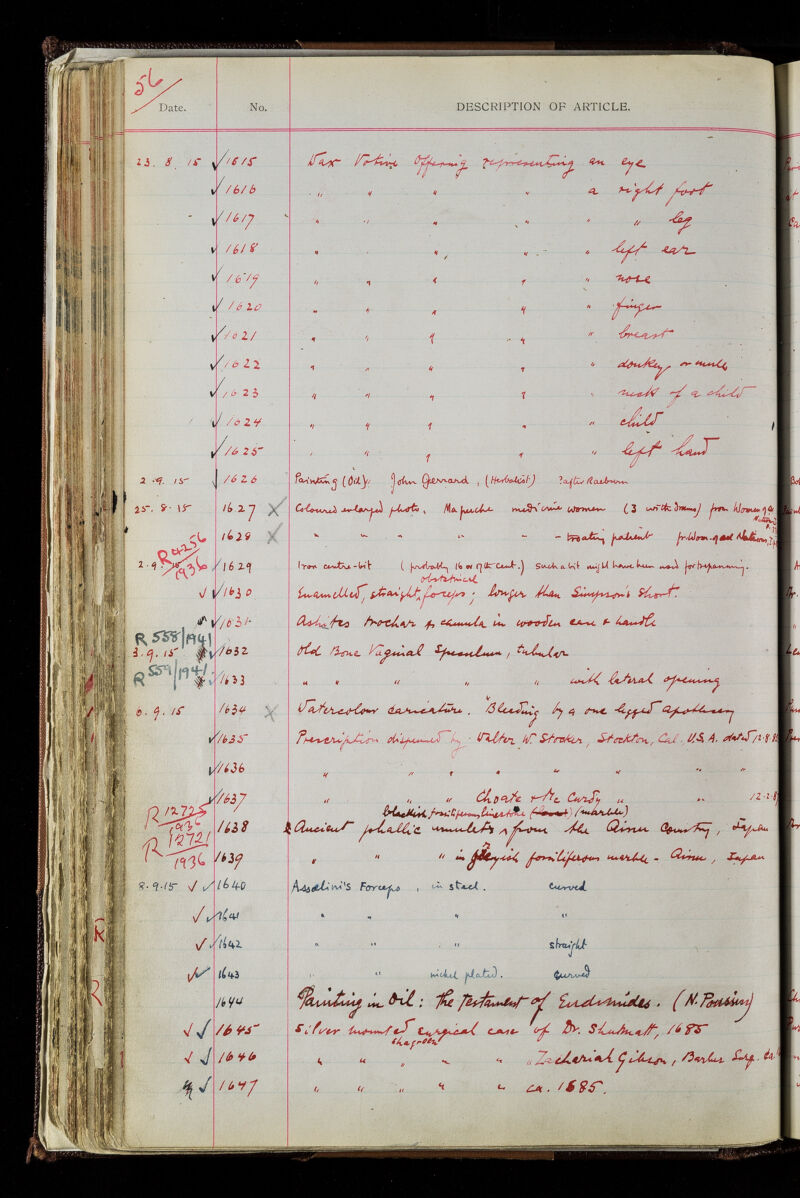 56
Date. No. DESCRIPTION OF ARTICLE.
23. 8. 15 1615 Wax Votive Offering representing an eye
1616 " " " " a right foot
1617 " " " " " " leg
1618 " " " " " left ear
1619 " " " " " nose
1620 " " " " " finger
1621 " " " " " breast
1622 " " " " " donkey, or mule
1623 " " " " neck of a child
1624 " " " " " child
1625 " " " " left hand
2. 9. 15 1626 Painting (Oil), John Gerrard, (Herbalist) ? after Raeburn
25. 8. 15 1627 X Coloured enlarged photo. Mapuche medicine women (3 with drums) from Women of all Nations
1628 X " " " " - treating patient fr. Wom. of all Nations,
R4256
1936
2. 9. 15 1629 Iron centre-bit (probably 16 or 17th cent.) such a bit might have been used for trepanning.
obstetrical
1630 Enamelled, straight, forceps; longer than Simpson's short.
1631 trochar & cannula in wooden case & handle
R 558/1941
3. 9. 15 1632 Old Bone Vaginal Speculum, tubular
R 559/1941
1633 " " " " " with lateral opening
6. 9. 15 1634 X Watercolour caricature. "Bleeding by a one legged apothecary
1635 Prescription dispensed by Walter W. Stocker, Stockton, Cal. U.S.A. dated 12.8.
1636 " " " " " " "
1637 " " " Choate & Mc Curdy " " 12.2.
blackish fossiliferous limestone (marble)
R 12725
1936
1638 Ancient phallic amulets from the Ainu Country, Japan
R 12721
1936
1639 " " " in greyish fossiliferous marble - Ainu, Japan
8. 9. 15 1640 Assalini's Forceps, in steel. curved
1641 " " " "
1642 " " " straight
1643 " " nickel plated. curved
1644 Painting in Oil: The Testament of Eudamides. (N. Poussin)
1645 Silver mounted surgical case of Dr. 1685
shagreen
1646 " " " " " Zachariah Gibson, Barber Surg.
1647 " " " " " ca. 1685.
R
R